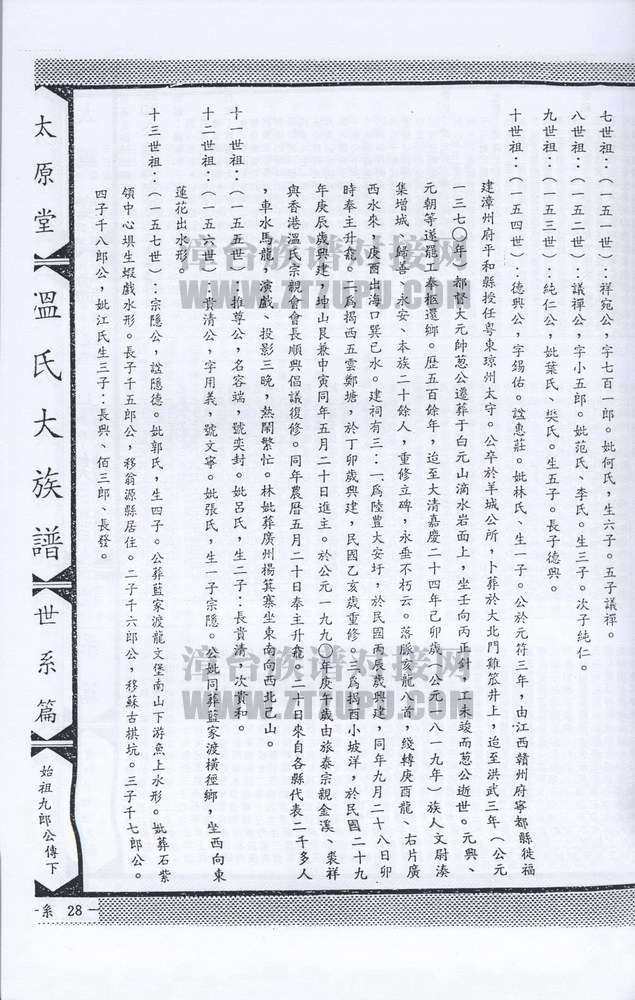 七世祖：（一五一世）：祥宛公，字七百一郎。妣何氏，生六子。五子議禪。
八世祖：（一五二世）：議禪公，字小五郎。妣范氏、李氏。生三子。次子純仁。
九世祖：（一五三世）：純仁公，妣葉氏、樊氏。生五子。長子德興。
十世祖：（一五四世）：德興公，字錫佑。諡惠莊。妣林氏、生一子。公於元符三年，由江西贛州府寧都縣徙福
建漳州府平和縣授任粵東琼州太守。公卒於羊城公所，卜葬於大北門雞笟井上，迨至洪武三年（公元
一三七〇年）都督大元帥蒽公遷葬于白元山滴水岩面上，坐壬向丙正針，工未竣而蒽公逝世。元興、
元朝等遂罷工奉柩還鄉。歷五百餘年，迨至大清嘉慶二十四年己卯歲（公元一八一九年）族人文尉湊
集增城、歸善、永安、本族二十餘人，重修立碑，永垂不朽云。落脈亥龍八首，綫轉庚酉龍、右片廣
西水來，庚酉出海口巽巳水。建祠有三：一為陸豐大安圩，於民國丙辰歲興建，同年九月二十八日卯
時奉主升龕。二為揭西五雲鄭塘，於丁卯歲興建，民國乙亥歲重修。三為揭西小坡洋，於民國二十九
年庚辰歲興建，珅山艮兼申寅同年五月二十日進主。於公元一九九〇年庚午歲由旅泰宗親金溪、裴祥
與香港溫氏宗親會會長順興倡議復修。同年農曆五月二十日奉主升龕。二十日來自各縣代表二千多人
，車水馬龍，演戲、投影三晚，熱鬧繁忙。林妣葬廣州楊箕寨坐東南向西北己山。
十一世祖：（一五五世）：推尊公，名容端，號奕封。妣呂氏，生二子：長貴清，次貴和。
十二世祖：（一五六世）：貴清公，字用義，號文寧。妣張氏，生一子宗隱。公妣同葬藍家渡橫徑鄉，坐西向東
蓮花出水形。
十三世祖：（一五七世）：宗隱公，諡隱德。妣郭氏，生四子。公葬藍家渡龍文堡南山下游魚上水形。妣葬石紫
領中心埧生蝦戲水形。長子千五郎公，移翁源縣居住。二子千六郎公，移蘇古栱坑。三子千七郎公。
四子千八郎公，妣江氏生三子：長興、佰三郎、長發。
太原堂
溫氏大族譜
世系篇
始祖九郎公傳下
-系 28-
漳台族谱对接网
WWW.ZTZUPU.COM
漳台族谱对接网
WWW.ZTZUPU.COM